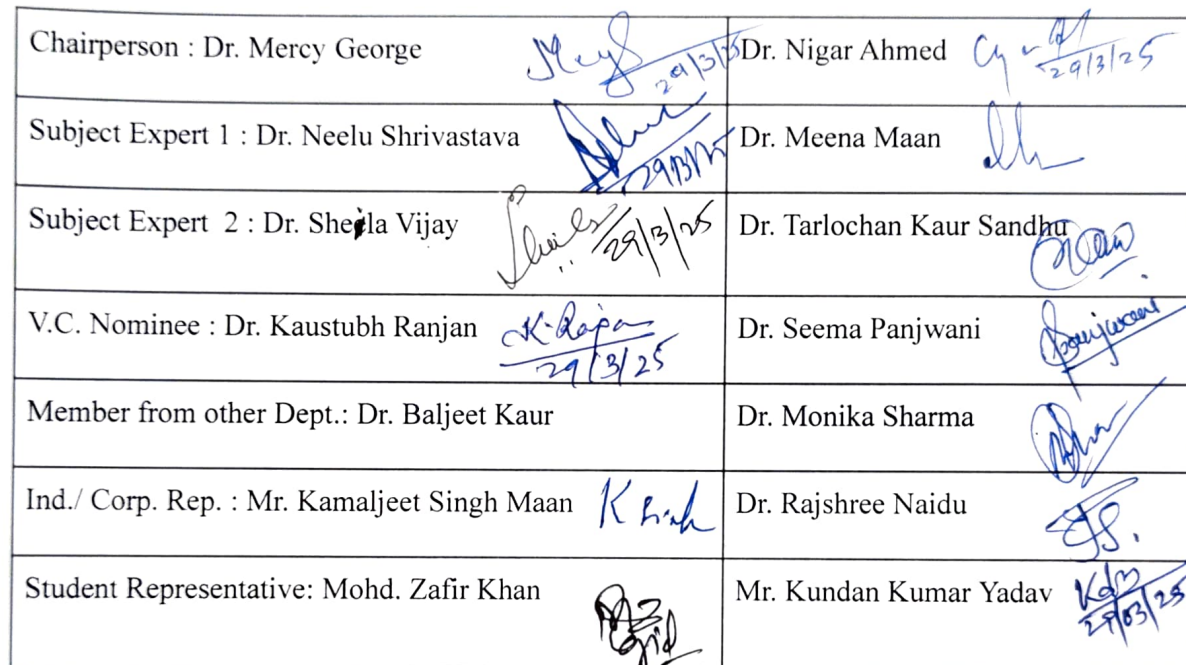 Chairperson : Dr. Mercy George 29/3/25 Dr. Nigar Ahmed 29/3/25
Subject Expert 1 : Dr. Neelu Shrivastava 29/3/25 Dr. Meena Maan
Subject Expert 2 : Dr. Sheila Vijay 29/3/25 Dr. Tarlochan Kaur Sandhu
V.C. Nominee : Dr. Kaustubh Ranjan 29/3/25 Dr. Seema Panjwani Panjwani
Member from other Dept.: Dr. Baljeet Kaur Dr. Monika Sharma
Ind./ Corp. Rep. : Mr. Kamaljeet Singh Maan Dr. Rajshree Naidu
Student Representative: Mohd. Zafir Khan Mr. Kundan Kumar Yadav 29/03/25